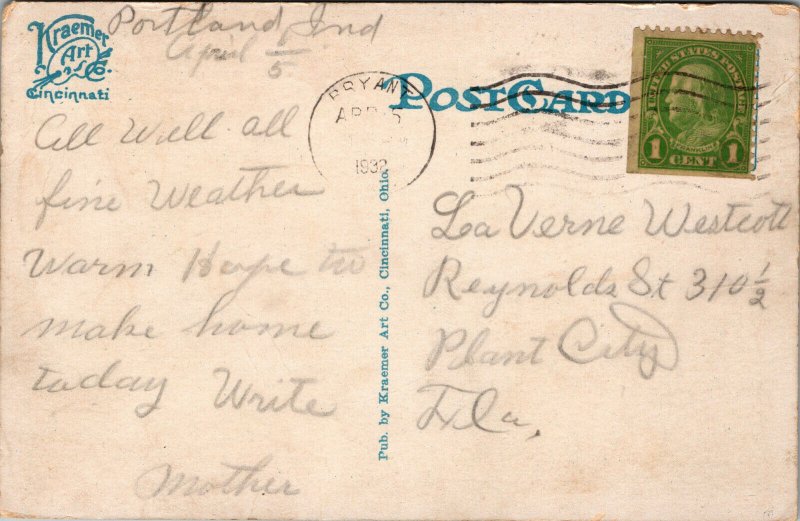 Kraemer
Art
Co.
Cincinnati
Portland, Ind
April 5
All Well. all
fine Weather
Warm Hope to
make home
today Write
Mother
Pub. by Kraemer Art Co., Cincinnati, Ohio.
BRYANT
APR 5
1932
POST CARD
UNITED STATES POSTAGE
FRANKLIN
1 CENT 1
La Verne Westcott
Reynolds St 310 1/2
Plant City
Fla,